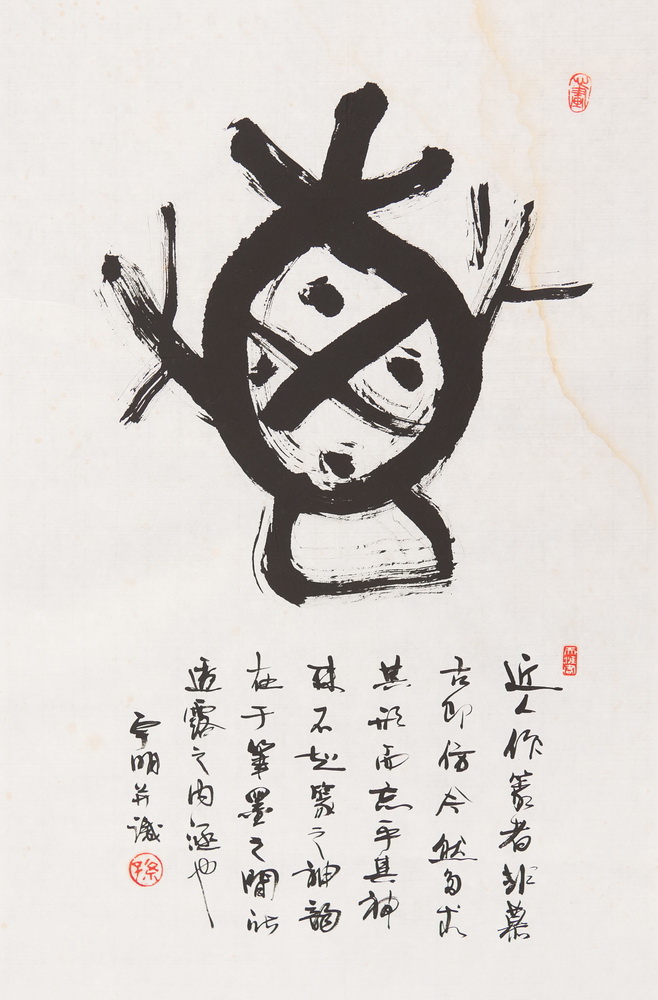 心畫
近人作篆者非摹
古即仿今然多求
其形而忘乎其神
殊不知篆之神韵
在于筆墨之間所
透露之内涵也
明并識
孫